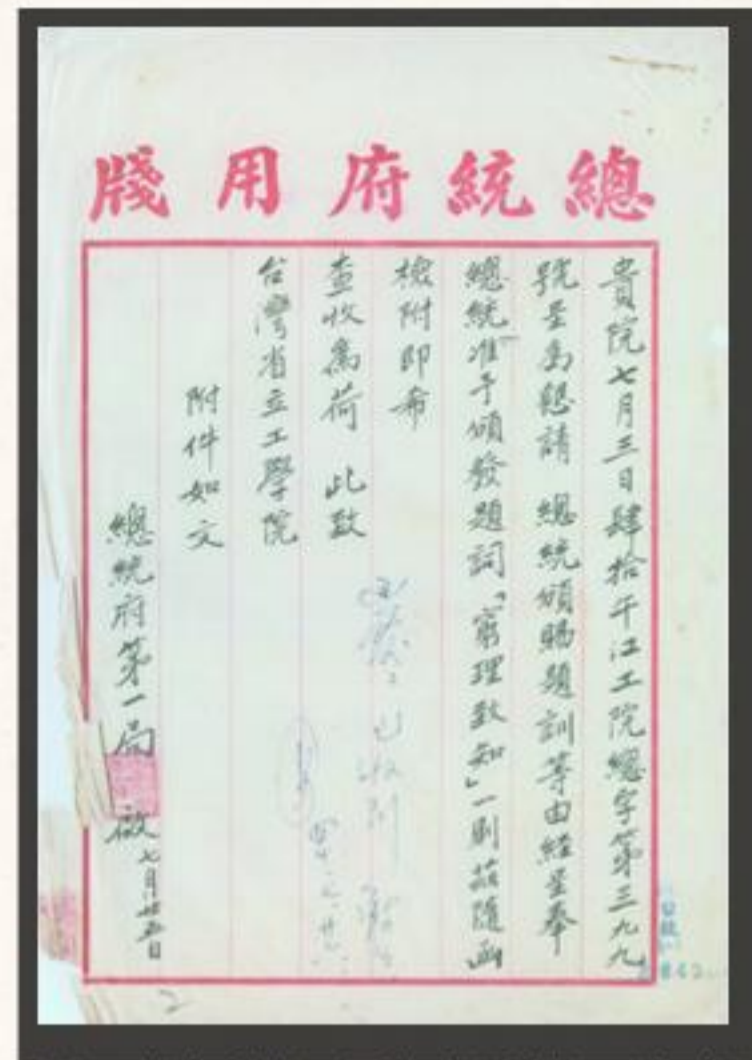 總統府用牋
貴院七月三日肆拾午江工院總字第三九九
號呈為懇請 總統頒賜題訓等由經呈奉
總統准予頒發題詞「窮理致知」一則茲隨函
檢附即希
查收為荷 此致
台灣省立工學院
附件如文
總統府第一局 啟 七月廿五日